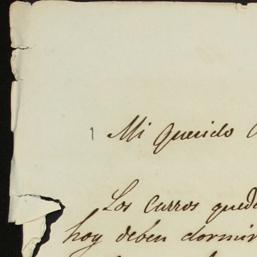 Mi Querido
Los Carros
hoy deben dormir